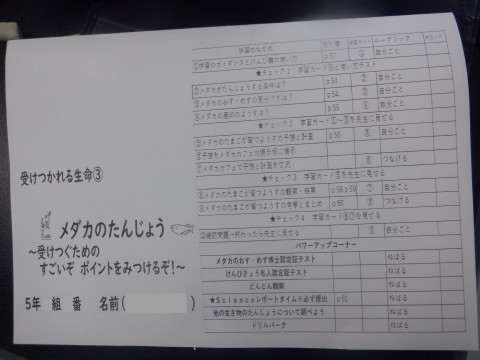 受けつがれる生命③
メダカのたんじょう
～受けつぐための
すごいぞ ポイントをみつけるぞ！～
5年 組 番 名前（ ）
学習のながれ
①学習のガイダンスとけんび鏡の使い方 p57 ① 自分ごと
★チェック1 学習カード①と使い方テスト
②メダカがたんじょうする条件は？ p54 ② 自分ごと
③メダカのおす・めすの見分け方は？ p54 ③ 自分ごと
④メダカの産卵のようすは？ p55 ④ 自分ごと
★チェック2 学習カード②～④を先生に見せる
⑤メダカのたまごが育つようすの予想と計画 p56 ⑤ 自分ごと
⑥予想をメダカカフェの掲示板に掲示
⑦メダカカフェで予想と計画を交流 ⑥ つなげる
を先生に見せる
⑧メダカのたまごが育つようすの観察・結果 p58 p59 ⑦ 自分ごと
⑨メダカのたまごが育つようすの考察とまとめ p60 ⑧ つなげる
★チェック4 学習カード⑥⑦を先生に見せる
終わったら先生に見せる 自分ごと
パワーアップコーナー
メダカのおす・めす博士認定証テスト ねばる
けんびきょう名人認定証テスト ねばる
どんどん観察 ねばる
★Scienceレポートタイム※必ず提出 p61 ねばる
他の生き物のたんじょうについて調べよう ねばる
ドリルパーク ねばる